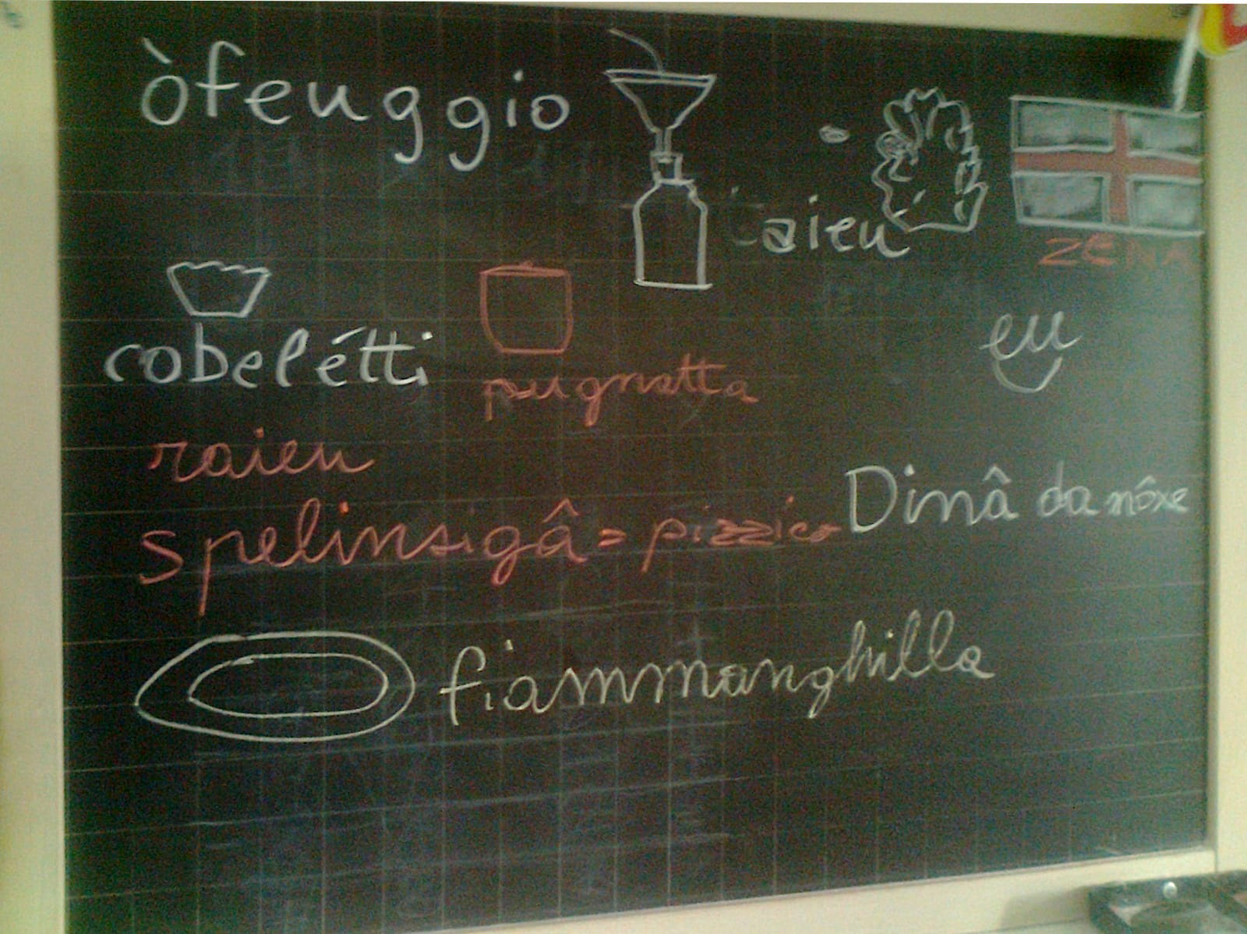 òfeuggio
aieu
ZENA
cobelétti
pugnatta
eu
raieu
spelinsigâ = pizzico
Dinâ da nôxe
fiammanghilla